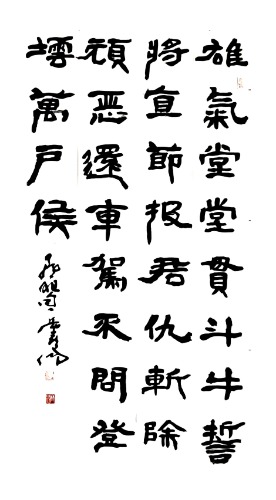 雄氣堂堂貫斗牛誓
將直節报君仇斬除
頑恶還車駕不問登
壇萬户侯